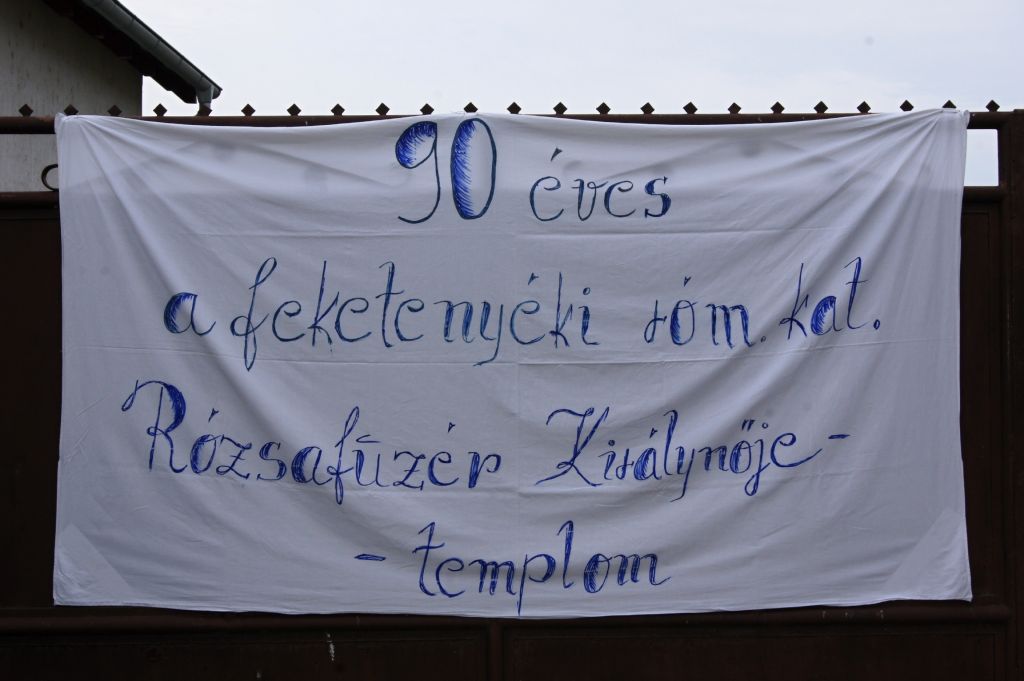 90 éves
a feketenyéki róm. kat.
Rózsafűzér Királynője -
- templom